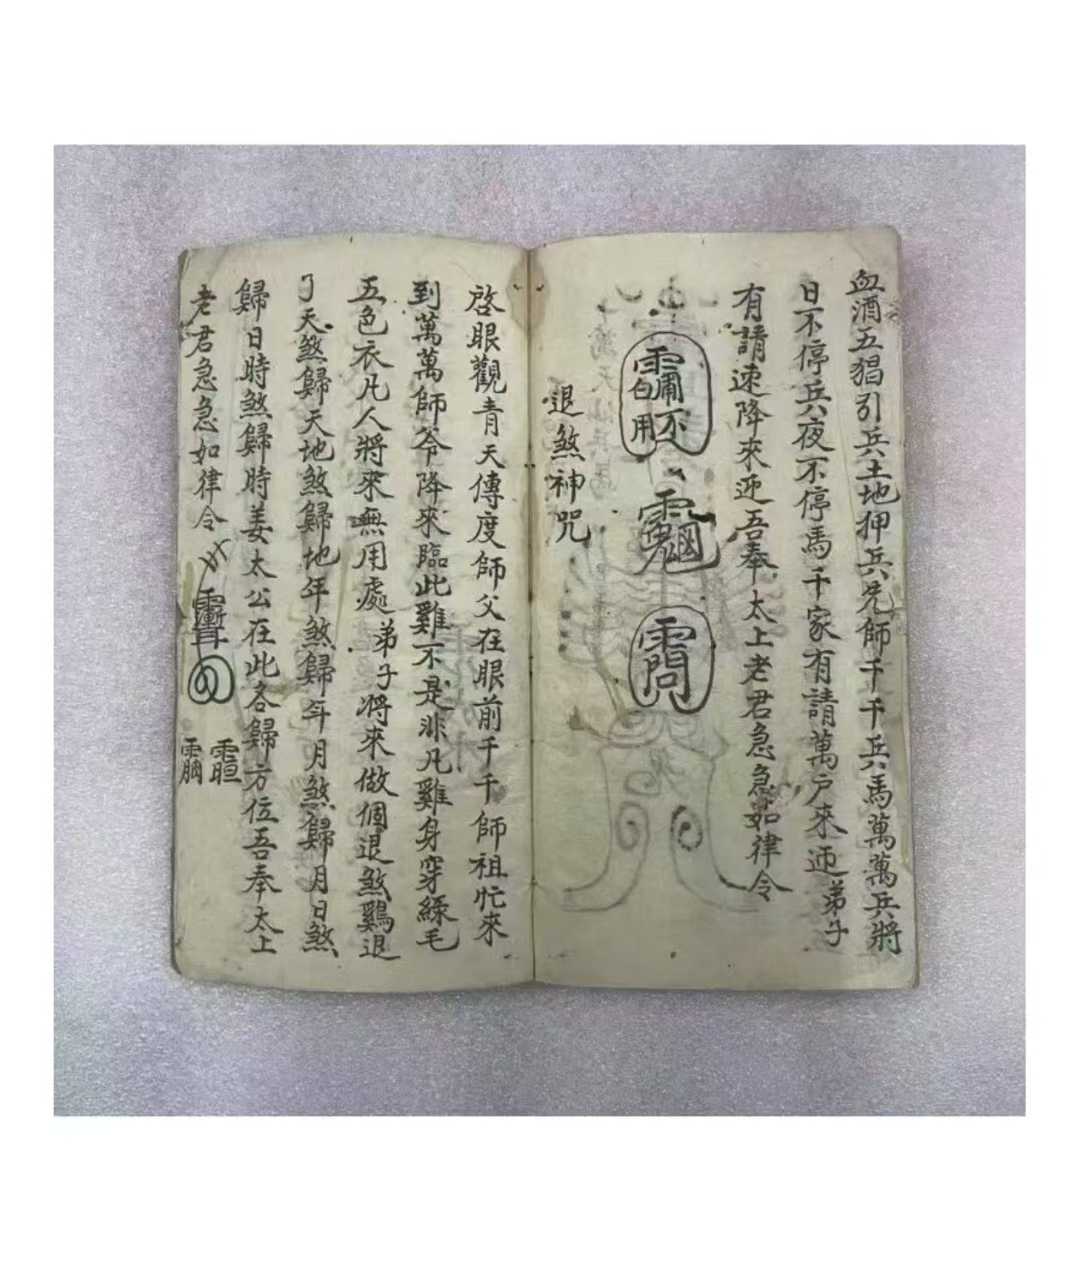 血酒五猖引兵土地押兵先師千千兵馬萬萬兵將
日不停兵夜不停馬千家有請萬户來迎弟子
有請速降來迎吾奉太上老君急急如律令
退煞神咒
啓眼觀青天傳度師父在眼前千千師祖忙來
到萬萬師爷降來臨此雞不是非凡雞身穿綠毛
五色衣凡人將來無用處弟子將來做個退煞鷄退
了天煞歸天地煞歸地年煞歸年月煞歸月日煞
歸日時煞歸時姜太公在此各歸方位吾奉太上
老君急急如律令